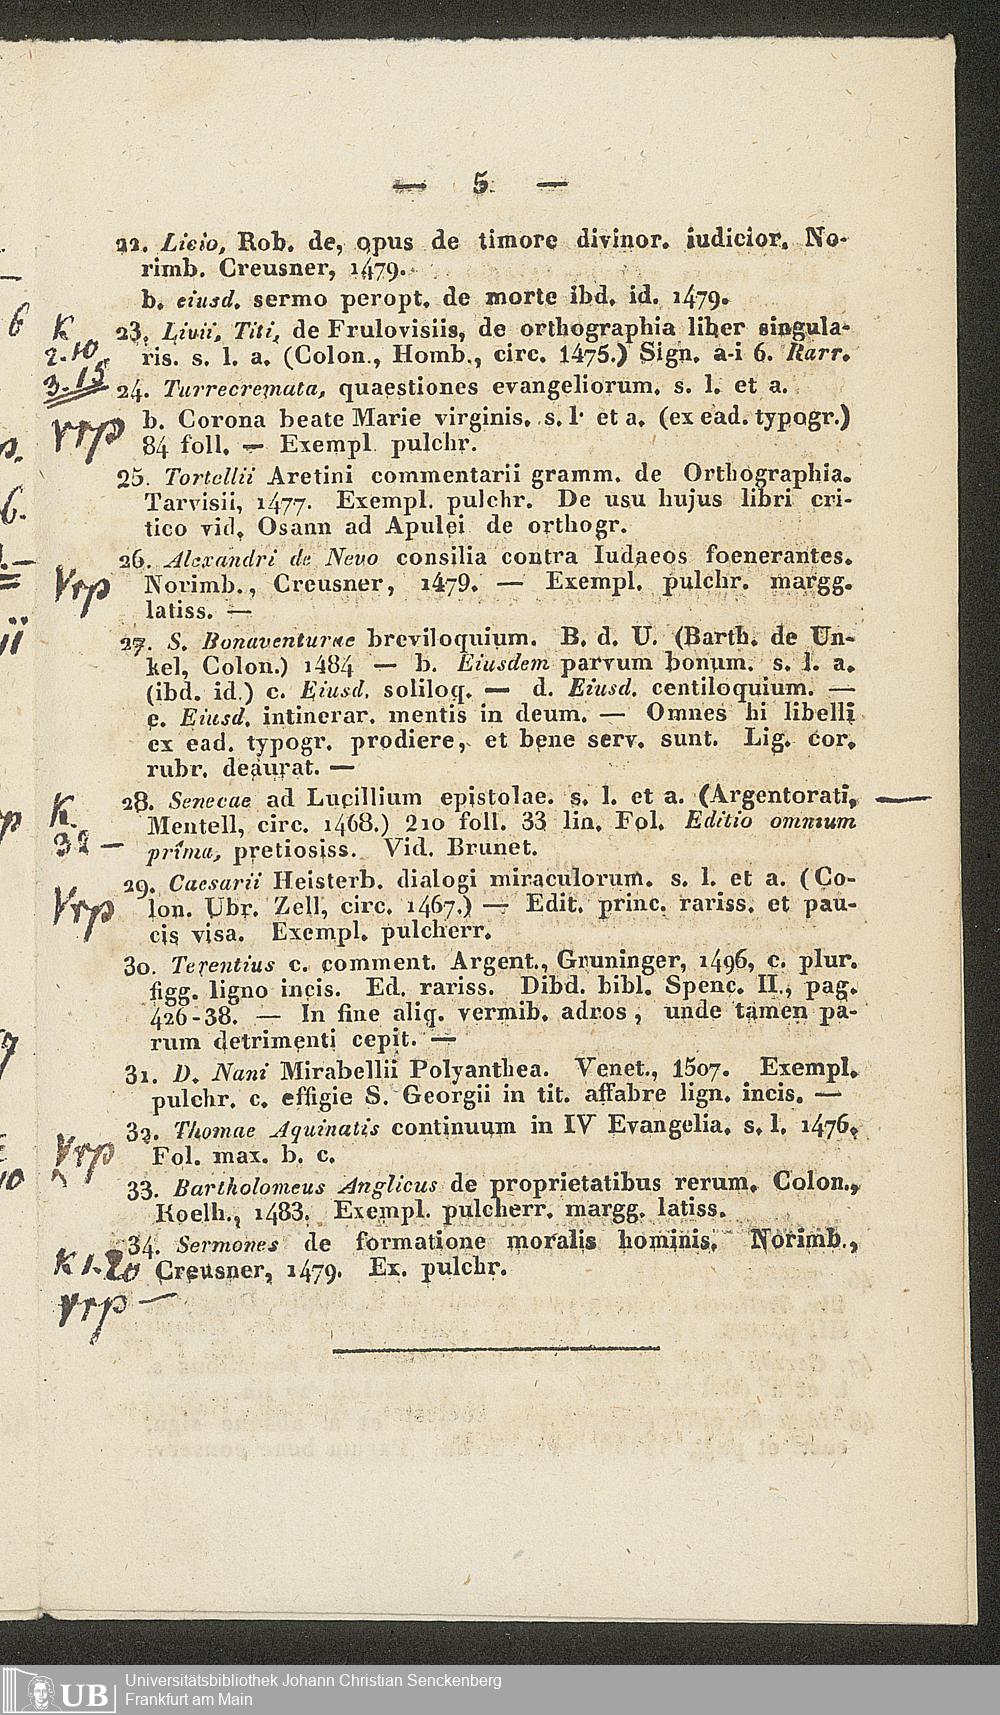 — 5 —
22. Licio, Rob. de, opus de timore divinor. iudicior. No-
rimb. Creusner, 1479.
b. eiusd. sermo peropt. de morte ibd. id. 1479.
K
2.10
3.15
23. Livii, Titi, de Frulovisiis, de orthographia liber singula-
ris. s. l. a. (Colon., Homb., circ. 1475.) Sign. a-i 6. Rarr.
24. Turrecremata, quaestiones evangeliorum. s. l. et a.
vrp
b. Corona beate Marie virginis. s. l. et a. (ex ead. typogr.)
84 foll. — Exempl. pulchr.
25. Tortellii Aretini commentarii gramm. de Orthographia.
Tarvisii, 1477. Exempl. pulchr. De usu hujus libri cri-
tico vid. Osann ad Apulei de orthogr.
Vrp
26. Alexandri de Nevo consilia contra Iudaeos foenerantes.
Norimb., Creusner, 1479. — Exempl. pulchr. margg.
latiss. —
27. S. Bonaventurae breviloquium. B. d. U. (Barth. de Un-
kel, Colon.) 1484 — b. Eiusdem parvum bonum. s. l. a.
(ibd. id.) c. Eiusd. soliloq. — d. Eiusd. centiloquium. —
e. Eiusd. intinerar. mentis in deum. — Omnes hi libelli
ex ead. typogr. prodiere, et bene serv. sunt. Lig. cor.
rubr. deaurat. —
K.
32 —
28. Senecae ad Lucillium epistolae. s. l. et a. (Argentorati, —
Mentell, circ. 1468.) 210 foll. 33 lin. Fol. Editio omnium
prima, pretiosiss. Vid. Brunet.
Vrp
29. Caesarii Heisterb. dialogi miraculorum. s. l. et a. (Co-
lon. Ubr. Zell, circ. 1467.) — Edit. princ. rariss. et pau-
cis visa. Exempl. pulcherr.
30. Terentius c. comment. Argent., Gruninger, 1496, c. plur.
figg. ligno incis. Ed. rariss. Dibd. bibl. Spenc. II., pag.
426-38. — In fine aliq. vermib. adros, unde tamen pa-
rum detrimenti cepit. —
31. D. Nani Mirabellii Polyanthea. Venet., 1507. Exempl.
pulchr. c. effigie S. Georgii in tit. affabre lign. incis. —
Vrp
32. Thomae Aquinatis continuum in IV Evangelia. s. l. 1476.
Fol. max. b. c.
33. Bartholomeus Anglicus de proprietatibus rerum. Colon.,
Koelh., 1483. Exempl. pulcherr. margg. latiss.
K 1.20
34. Sermones de formatione moralis hominis. Norimb.,
Creusner, 1479. Ex. pulchr.
vrp —
UB
Universitätsbibliothek Johann Christian Senckenberg
Frankfurt am Main